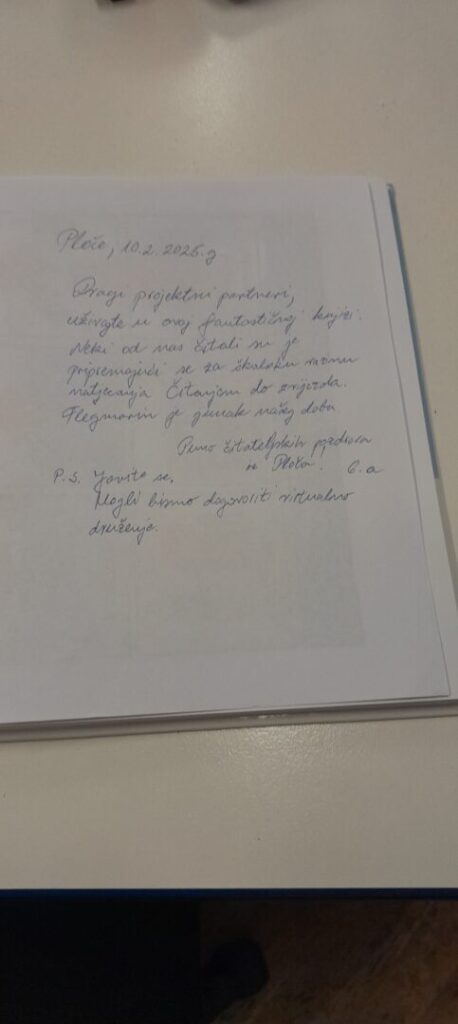 Ploče, 10.2.2025.g
Dragi projektni partneri,
uživajte u ovoj fantastičnoj knjizi.
Neki od nas čitali su je
pripremajući se za školsku razinu
natjecanja Čitanjem do zvijezda.
Flegmarin je junak našeg doba
Puno čitateljskih pozdrava
iz Ploča! 6.a
P.S. Javite se.
Mogli bismo dogovoriti virtualno
druženje.